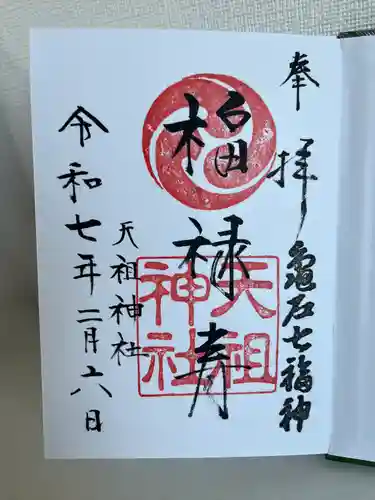 奉拝
亀石七福神
福禄寿
天祖神社
天祖神社
令和七年二月六日